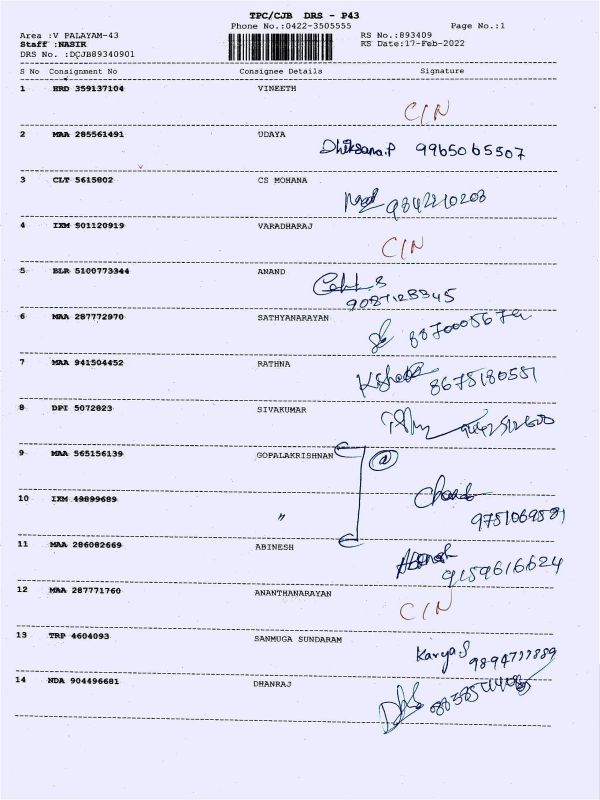 TPC/CJB DRS - P43
Phone No.:0422-3505555 Page No.:1
Area :V PALAYAM-43 RS No.:893409
Staff :NASIR RS Date:17-Feb-2022
DRS No. :DCJB89340901
S No Consignment No Consignee Details Signature
1 HRD 359137104 VINEETH
C/N
2 MAA 285561491 UDAYA
Dhiksana.P 9965065507
3 CLT 5615802 CS MOHANA
9842210208
4 IXM 501120919 VARADHARAJ
C/N
5 BLR 5100773344 ANAND
9087123345
6 MAA 287772970 SATHYANARAYAN
7 MAA 941504452 RATHNA
8675180551
8 DPI 5072823 SIVAKUMAR
9 MAA 565156139 GOPALAKRISHNAN
10 IXM 49899689 "
9751069581
11 MAA 286082669 ABINESH
9159616624
12 MAA 287771760 ANANTHANARAYAN
C/N
13 TRP 4604093 SANMUGA SUNDARAM
Karya.S
14 NDA 904496681 DHANRAJ